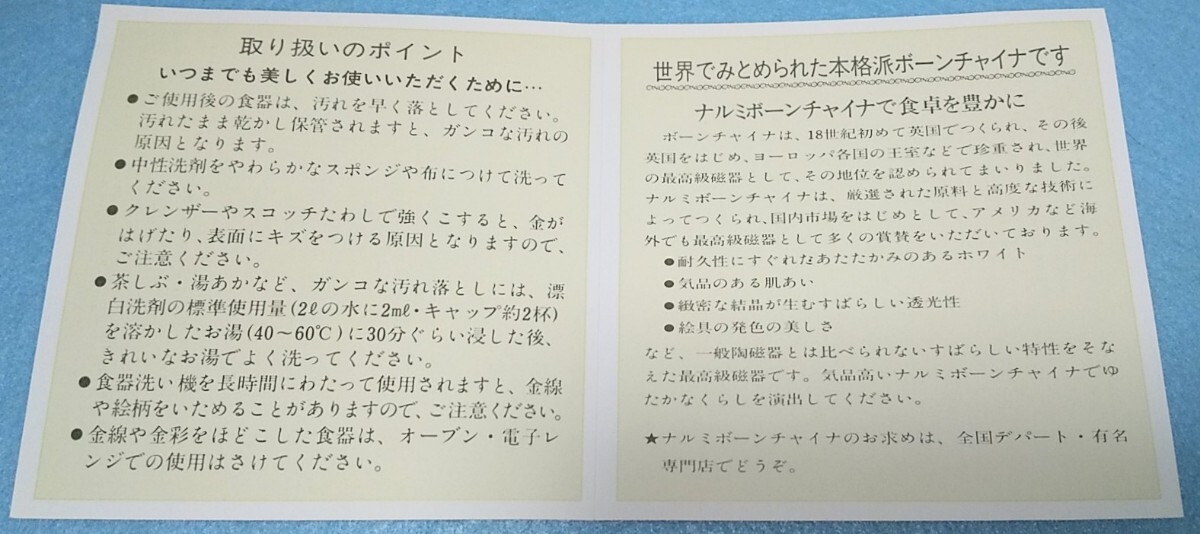 取り扱いのポイント
いつまでも美しくお使いいただくために…
●ご使用後の食器は、汚れを早く落としてください。
汚れたまま乾かし保管されますと、ガンコな汚れの
原因となります。
●中性洗剤をやわらかなスポンジや布につけて洗って
ください。
●クレンザーやスコッチたわしで強くこすると、金が
はげたり、表面にキズをつける原因となりますので、
ご注意ください。
●茶しぶ・湯あかなど、ガンコな汚れ落としには、漂
白洗剤の標準使用量(2ℓの水に2mℓ・キャップ約2杯)
を溶かしたお湯(40〜60℃)に30分ぐらい浸した後、
きれいなお湯でよく洗ってください。
●食器洗い機を長時間にわたって使用されますと、金線
や絵柄をいためることがありますので、ご注意ください。
●金線や金彩をほどこした食器は、オーブン・電子レ
ンジでの使用はさけてください。
世界でみとめられた本格派ボーンチャイナです
ナルミボーンチャイナで食卓を豊かに
ボーンチャイナは、18世紀初めて英国でつくられ、その後
英国をはじめ、ヨーロッパ各国の王室などで珍重され、世界
の最高級磁器として、その地位を認められてまいりました。
ナルミボーンチャイナは、厳選された原料と高度な技術に
よってつくられ、国内市場をはじめとして、アメリカなど海
外でも最高級磁器として多くの賞賛をいただいております。
●耐久性にすぐれたあたたかみのあるホワイト
●気品のある肌あい
●緻密な結晶が生むすばらしい透光性
●絵具の発色の美しさ
など、一般陶磁器とは比べられないすばらしい特性をそな
えた最高級磁器です。気品高いナルミボーンチャイナでゆ
たかなくらしを演出してください。
★ナルミボーンチャイナのお求めは、全国デパート・有名
専門店でどうぞ。